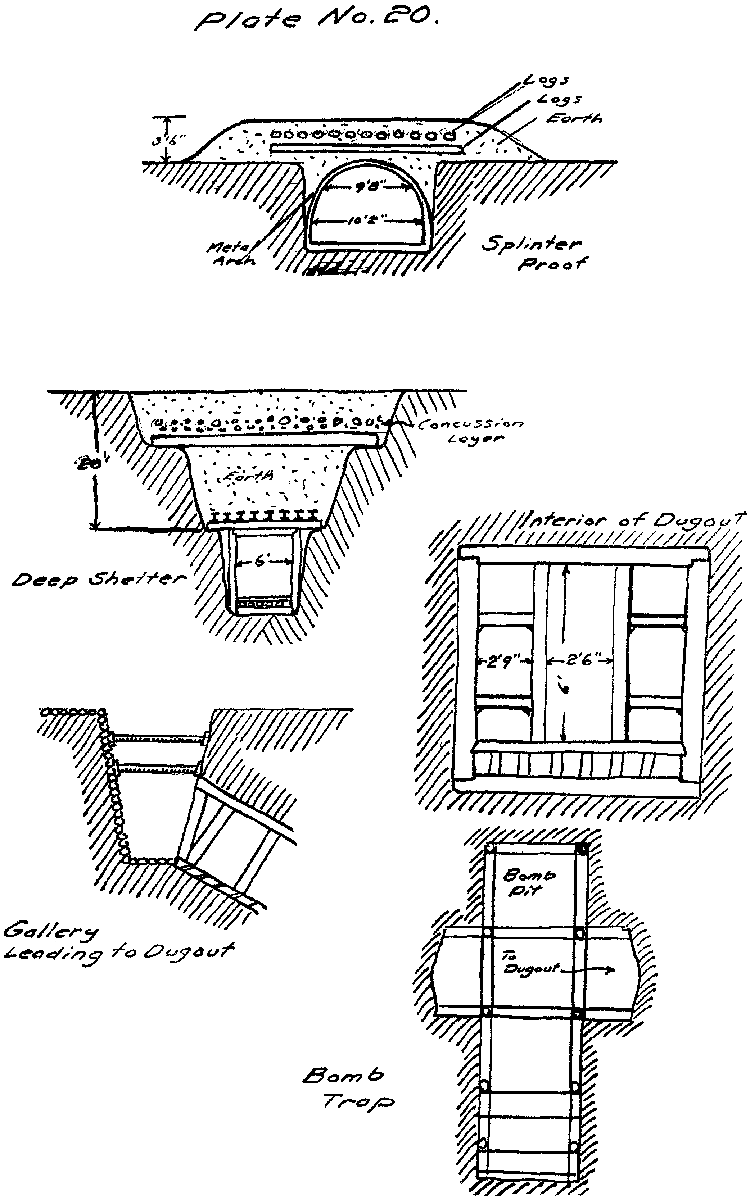 Plate No. 20.
Logs
Logs
Earth
3'6"
9'8"
10'2"
Metal
Arch
Splinter
Proof
Concussion
Layer
20'
Earth
6'
Deep Shelter
Interior of Dugout
2'9"
2'6"
6'
Gallery
Leading to Dugout
Bomb
Pit
To
Dugout
Bomb
Trap